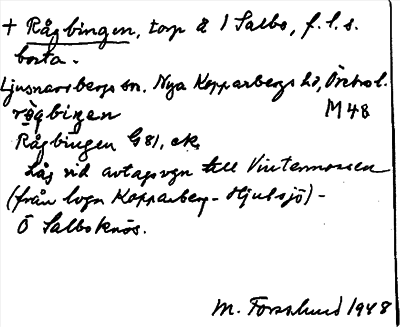 + Rågbingen, torp å 1 Salbo, f.l.s.
borta.
Ljusnarsbergs sn. Nya Kopparbergs hd, Örebro l.
rögbiŋen M48
Rågbingen G81, ek.
Låg vid avtagsvgn till Vintermossen
(från lvgn Kopparberg - Hjulsjö) -
Ö Salboknös.
M. Forsslund 1948